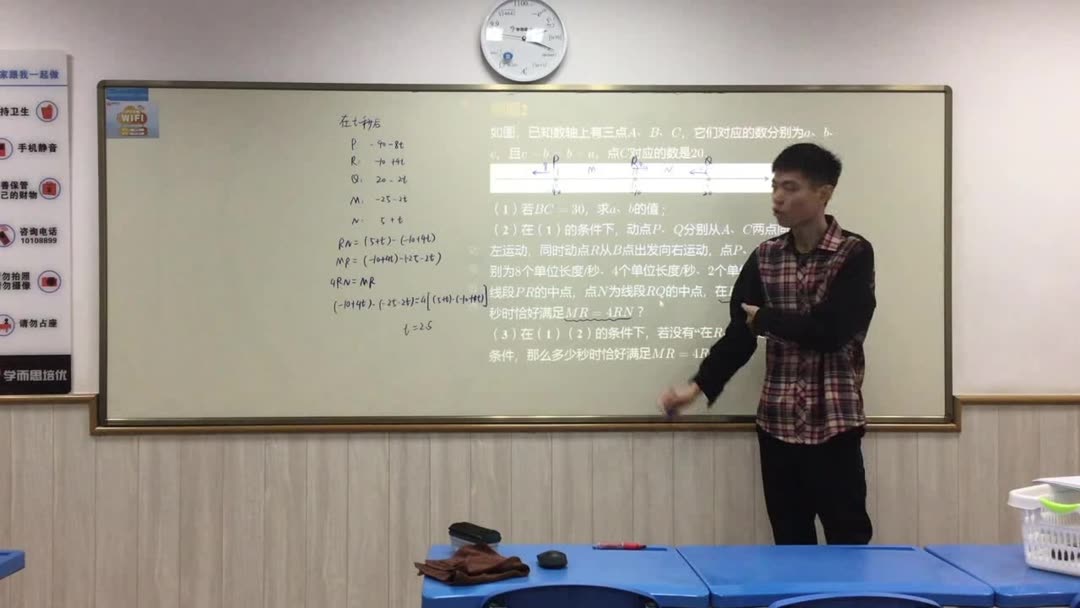 家跟我一起做
持卫生
手机静音
善保管
己的财物
咨询电话
10108899
勿拍照
勿摄像
请勿占座
学而思培优
WIFI
在t秒后
P -40-8t
R: -10+4t
Q: 20-2t
M: -25-2t
N: 5+t
RN=(5+t)-(-10+4t)
MR=(-10+4t)-(-25-2t)
4RN=MR
(-10+4t)-(-25-2t)=4[(5+t)-(-10+4t)]
t=2.5
如图，已知数轴上有三点A、B、C，它们对应的数分别为a、b、
c，且c-b=b-a，点C对应的数是20．
P M R N Q
-40 -10 20
（1）若BC=30，求a、b的值；
（2）在（1）的条件下，动点P、Q分别从A、C两点同
左运动，同时动点R从B点出发向右运动，点P、
别为8个单位长度/秒、4个单位长度/秒、2个单位
线段PR的中点，点N为线段RQ的中点，在
秒时恰好满足MR=4RN？
（3）在（1）（2）的条件下，若没有“在R
条件，那么多少秒时恰好满足MR=4R